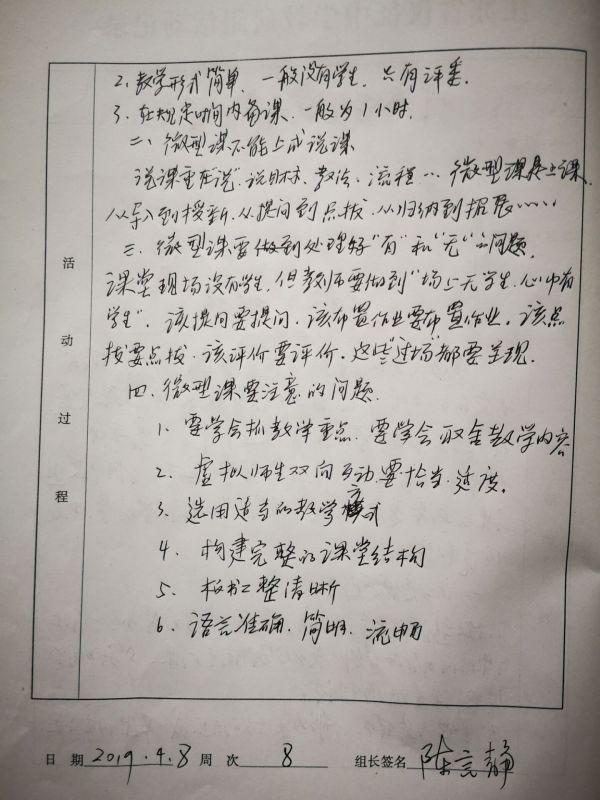 2. 教学形式简单，一般没有学生，只有评委.
3. 在规定时间内备课，一般为1小时.
二、微型课不能上成说课
说课重在"说"说教材、教法、流程… 微型课是上课.
从导入到授新，从提问到点拨，从归纳到拓展……
三、微型课要做到处理好"有"和"无"的问题.
课堂现场没有学生，但教师要做到"场上无学生，心中有
学生"，该提问要提问，该布置作业要布置作业，该点
拨要点拨，该评价要评价，这些"过场"都要呈现.
四、微型课要注意的问题
1、要学会抓教学重点，要学会取舍教学内容
2、虚拟师生双向互动要恰当、适度。
3、选用适当的教学方式
4、构建完整的课堂结构
5、板书工整清晰
6、语言准确、简明、流畅
活动过程
日 期 2019.4.8 周 次 8 组长签名 陈言静